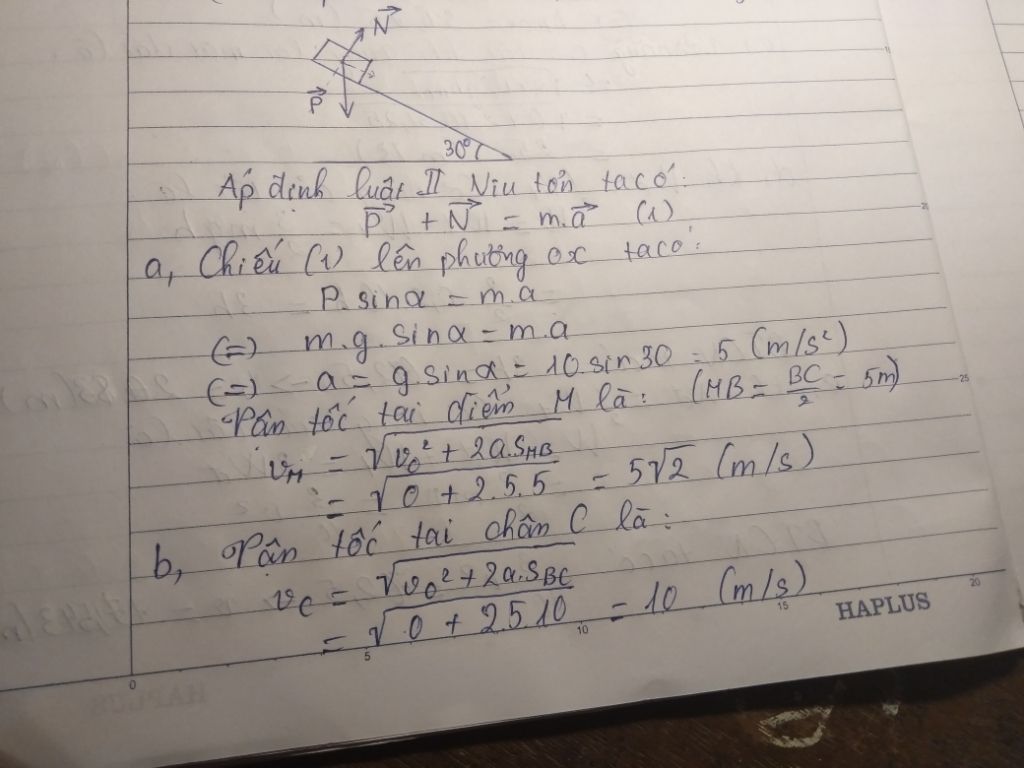 N
P
30°
Áp định luật II Niu tơn ta có:
P + N = m.a (1)
a, Chiếu (1) lên phương ox ta có:
P. sinα = m.a
(=) m.g. sinα = m.a
(=) a = g sinα = 10 sin 30 = 5 (m/s²)
Vận tốc tại điểm M là: (MB = BC/2 = 5m)
v_M = √v₀² + 2a.S_MB
= √0 + 2.5.5 = 5√2 (m/s)
b, Vận tốc tại chân C là:
v_C = √v₀² + 2a.S_BC
= √0 + 2.5.10 = 10 (m/s)
HAPLUS
0 5 10 15 20
25